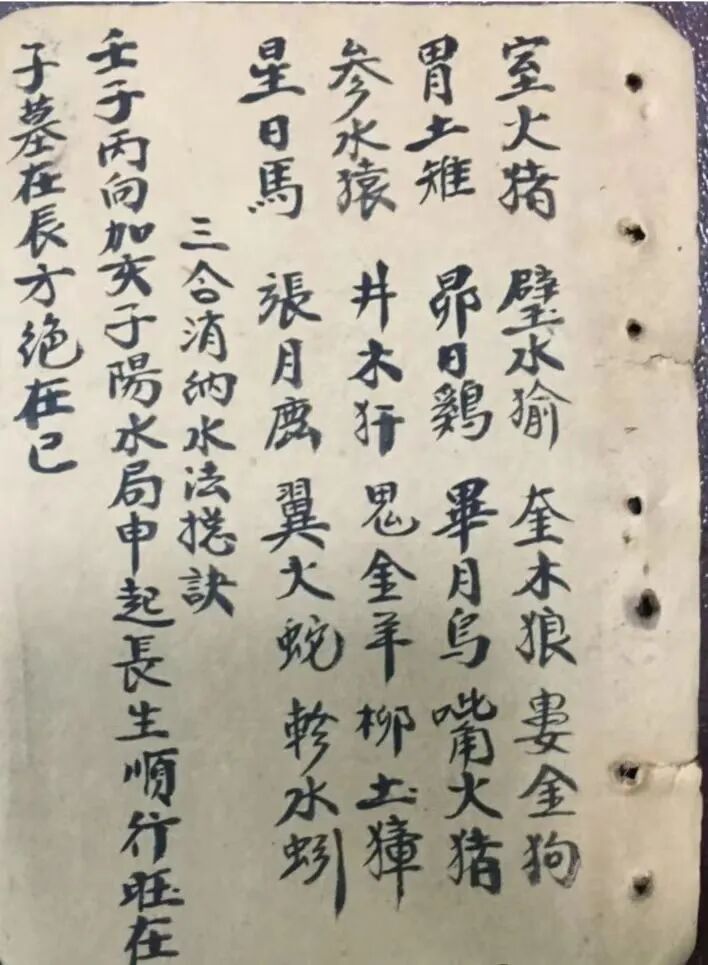 室火猪 壁水㺄 奎木狼 娄金狗
胃土雉 昴日鷄 畢月烏 嘴火猪
参水猿 井木犴 鬼金羊 柳土獐
星日馬 張月鹿 翼火蛇 軫水蚓
三合消納水法搃訣
壬子丙向加亥子陽水局申起長生順行旺在
子墓在辰方絶在巳